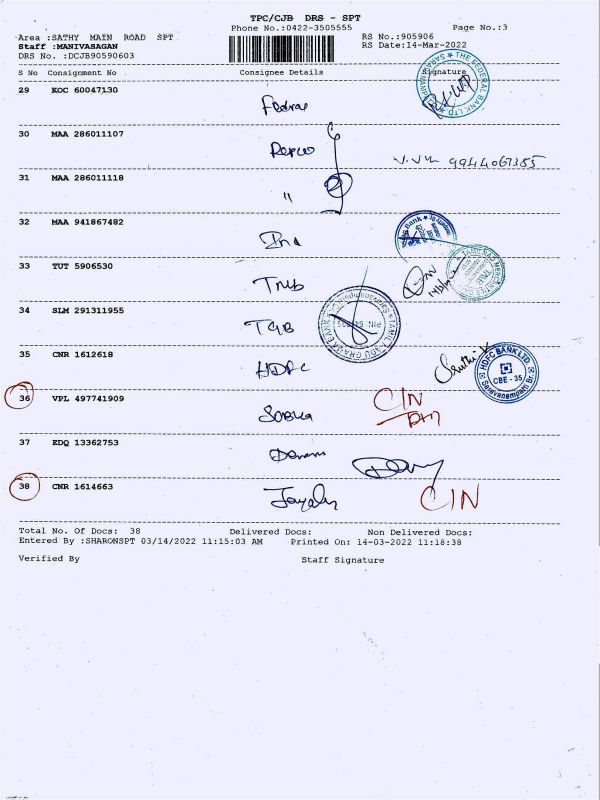 TPC/CJB DRS - SPT
Phone No.:0422-3505555
Page No.:3
Area :SATHY MAIN ROAD SPT
RS No.:905906
Staff :MANIVASAGAN
RS Date:14-Mar-2022
DRS No. :DCJB90590603
S No Consignment No Consignee Details Signature
29 KOC 60047130
Fedral
THE FEDERAL BANK LTD
30 MAA 286011107
Repco
V.Vk 9944067355
31 MAA 286011118
"
32 MAA 941867482
Ind
33 TUT 5906530
TMB
34 SLM 291311955
TGB
TAMIL NADU GRAMA BANK
35 CNR 1612618
HDFC
HDFC BANK LTD.
CBE - 35
Saravanampatti Br
36 VPL 497741909
CIN
37 EDQ 13362753
38 CNR 1614663
CIN
Total No. Of Docs: 38 Delivered Docs: Non Delivered Docs:
Entered By :SHARONSPT 03/14/2022 11:15:03 AM Printed On: 14-03-2022 11:18:38
Verified By Staff Signature